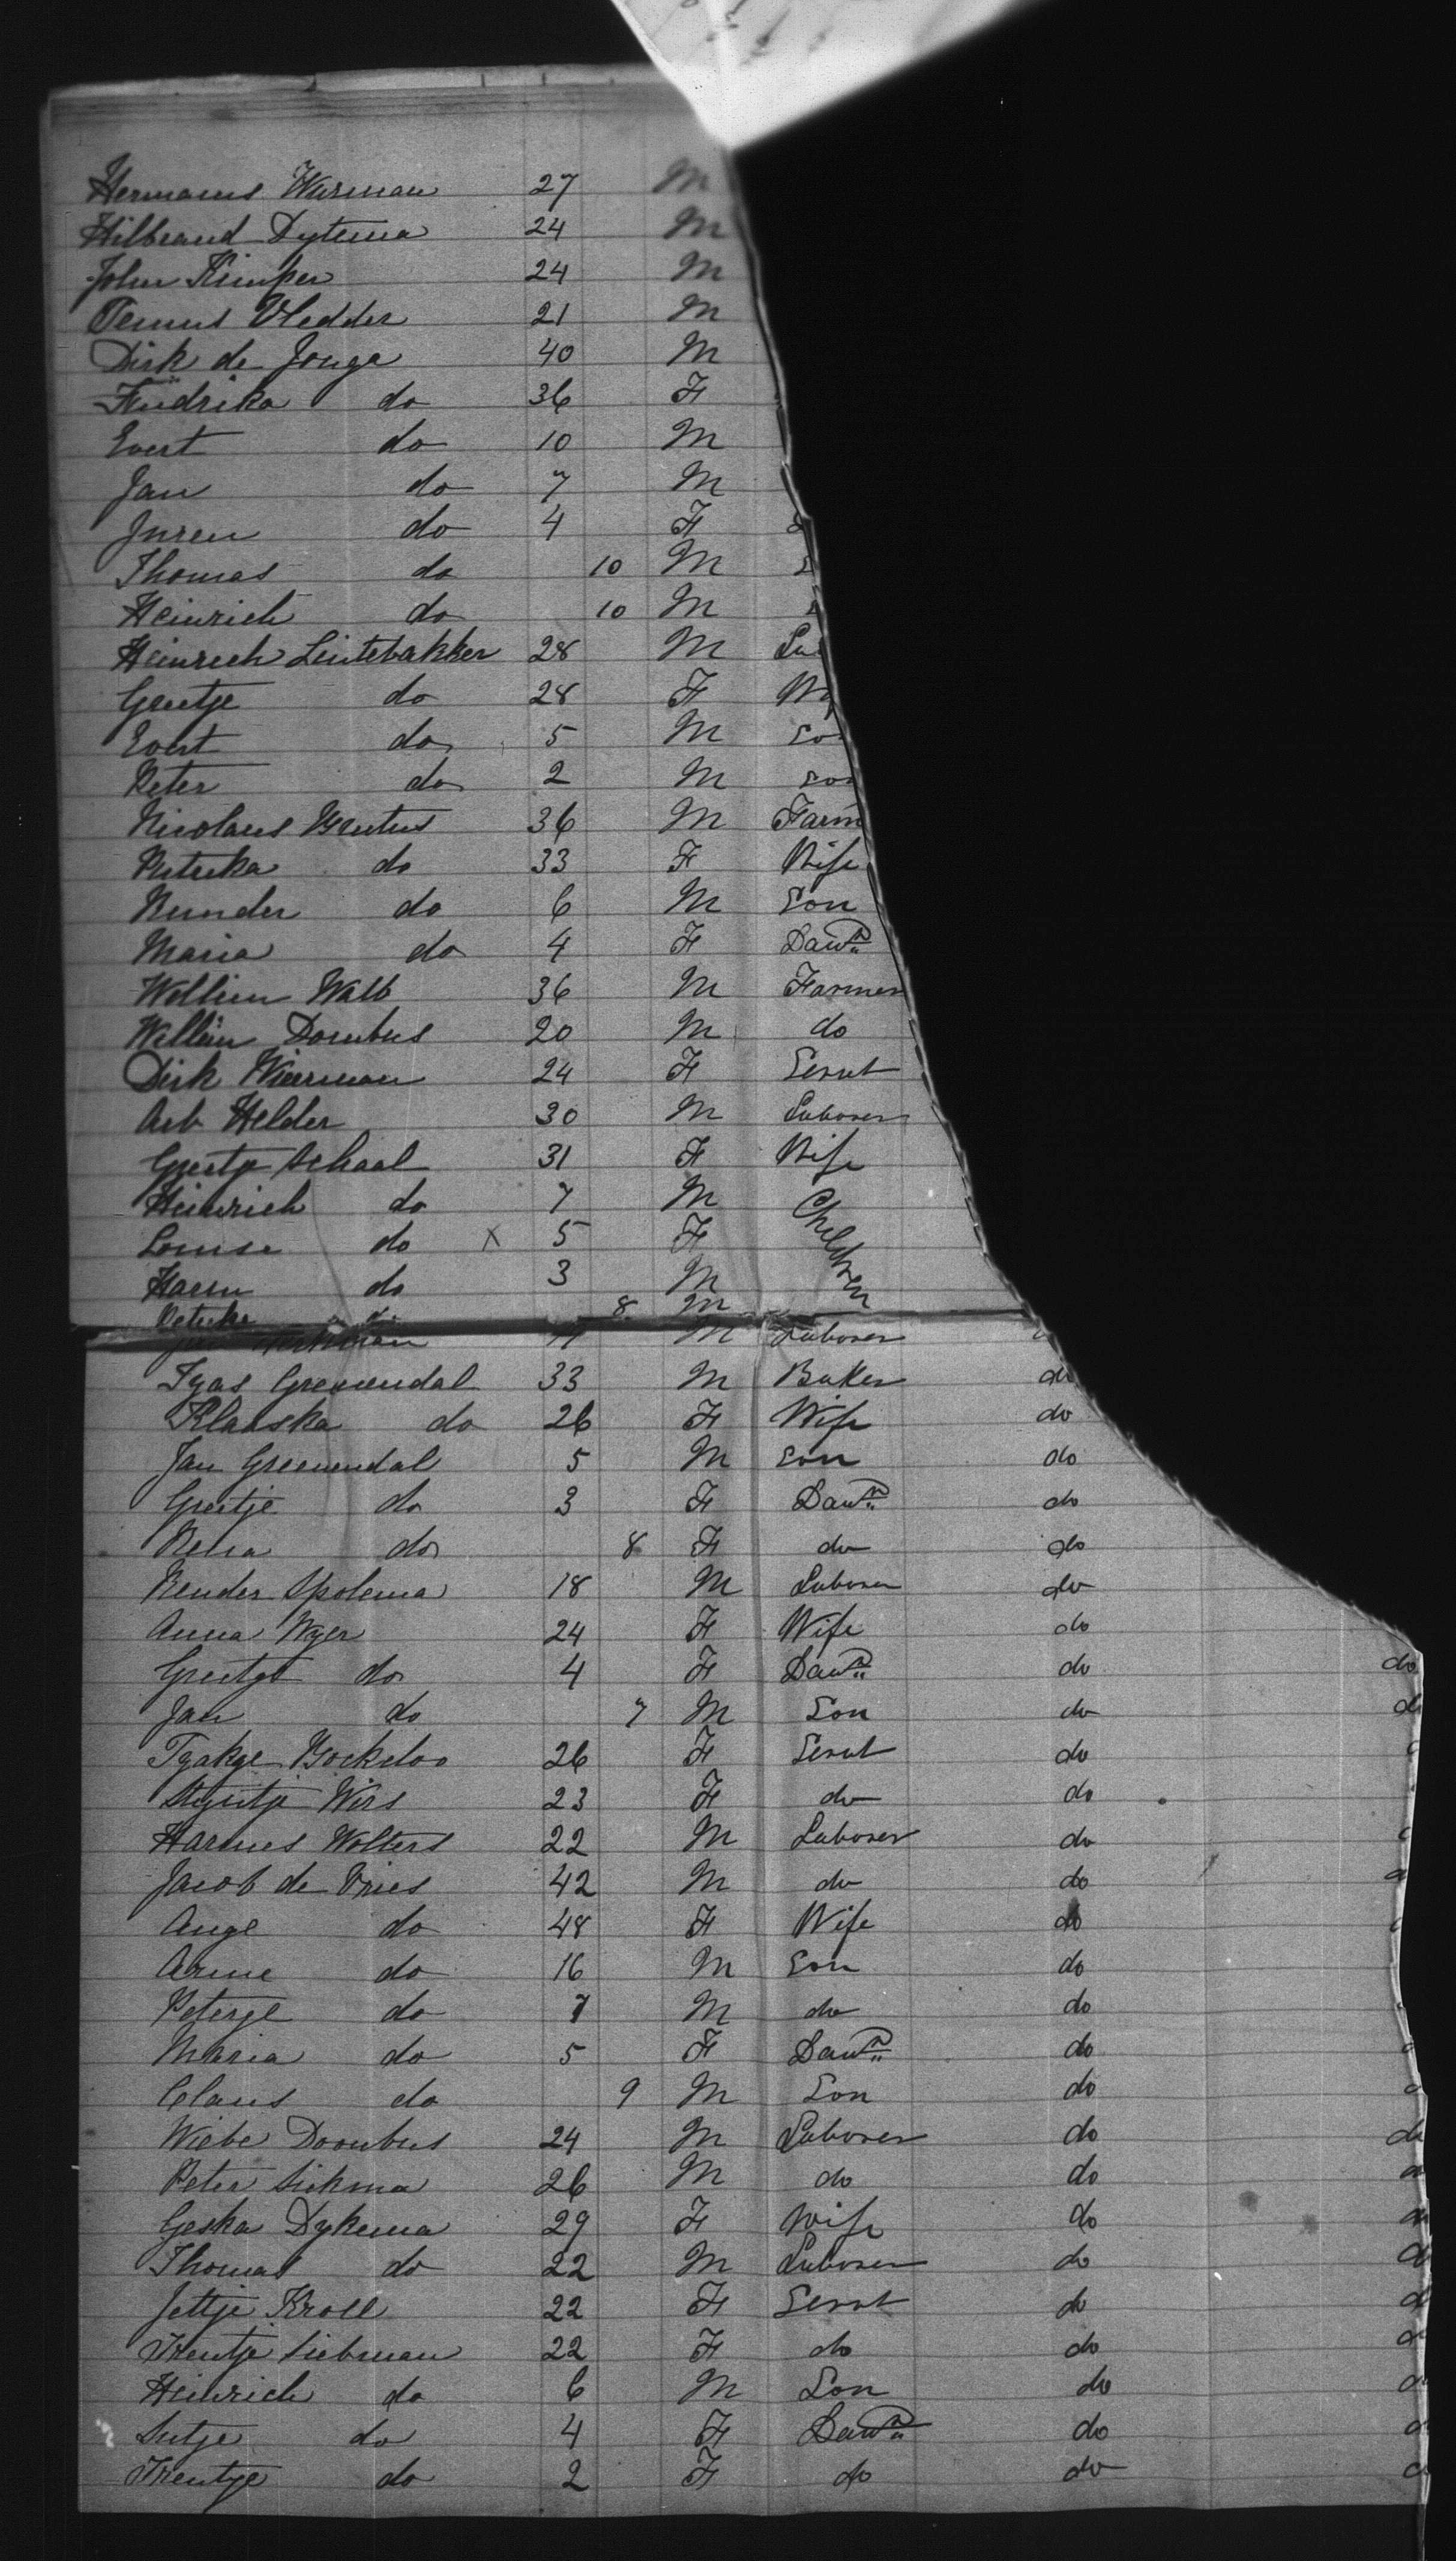 Hermanus Wurman 27 M
Hilbrand Dytema 24 M
John Kimper 24 M
Temus Vledder 21 M
Dirk de Jonge 40 M
Hindrika do 36 F
Evert do 10 M
Jan do 7 M
Juren do 4 F
Thomas do 10 M
Heinrich do 10 M
Heinrich Lintebakker 28 M
Greetje do 28 F
Evert do 5 M
Peter do 2 M Son
Nicolaus 36 M Farm
do 33 F Wife
do 6 M Son
Maria do 4 F Daut
Wallb 36 M Farmer
Dornbus 20 M do
Dirk Wiurman 24 F Servt
Arb Helder 30 M Laborer
Schaal 31 F Wife
Heinrich do 7 M Children
Louise do X 5 F
Harm do 3 M
8 M
M Laborer
33 M Baker do
Klaaska do 26 F Wife do
Jan Groenendal 5 M Son do
Greetje do 3 F Daut do
do 8 F do do
Render Spolema 18 M Laborer do
Anna Wyer 24 F Wife do
do 4 F Daut do do
Jan do 7 M Son do
26 F Servt do
Wirs 23 F do do
Harmes Wolters 22 M Laborer do
Jacob de Vries 42 M do do
Ange do 48 F Wife do
Arme do 16 M Son do
Peterge do 7 M do do
Maria do 5 F Daut do
Claus do 9 M Son do
Wiebe Doornbus 24 M Laborer do
Peter Sickma 26 M do do
Geska Dykema 29 F Wife do
Thomas do 22 M Laborer do
Jettje Kroll 22 F Servt do
Trentje Siebman 22 F do do
Heinrich do 6 M Son do
do 4 F Daut do
Trentje do 2 F do do